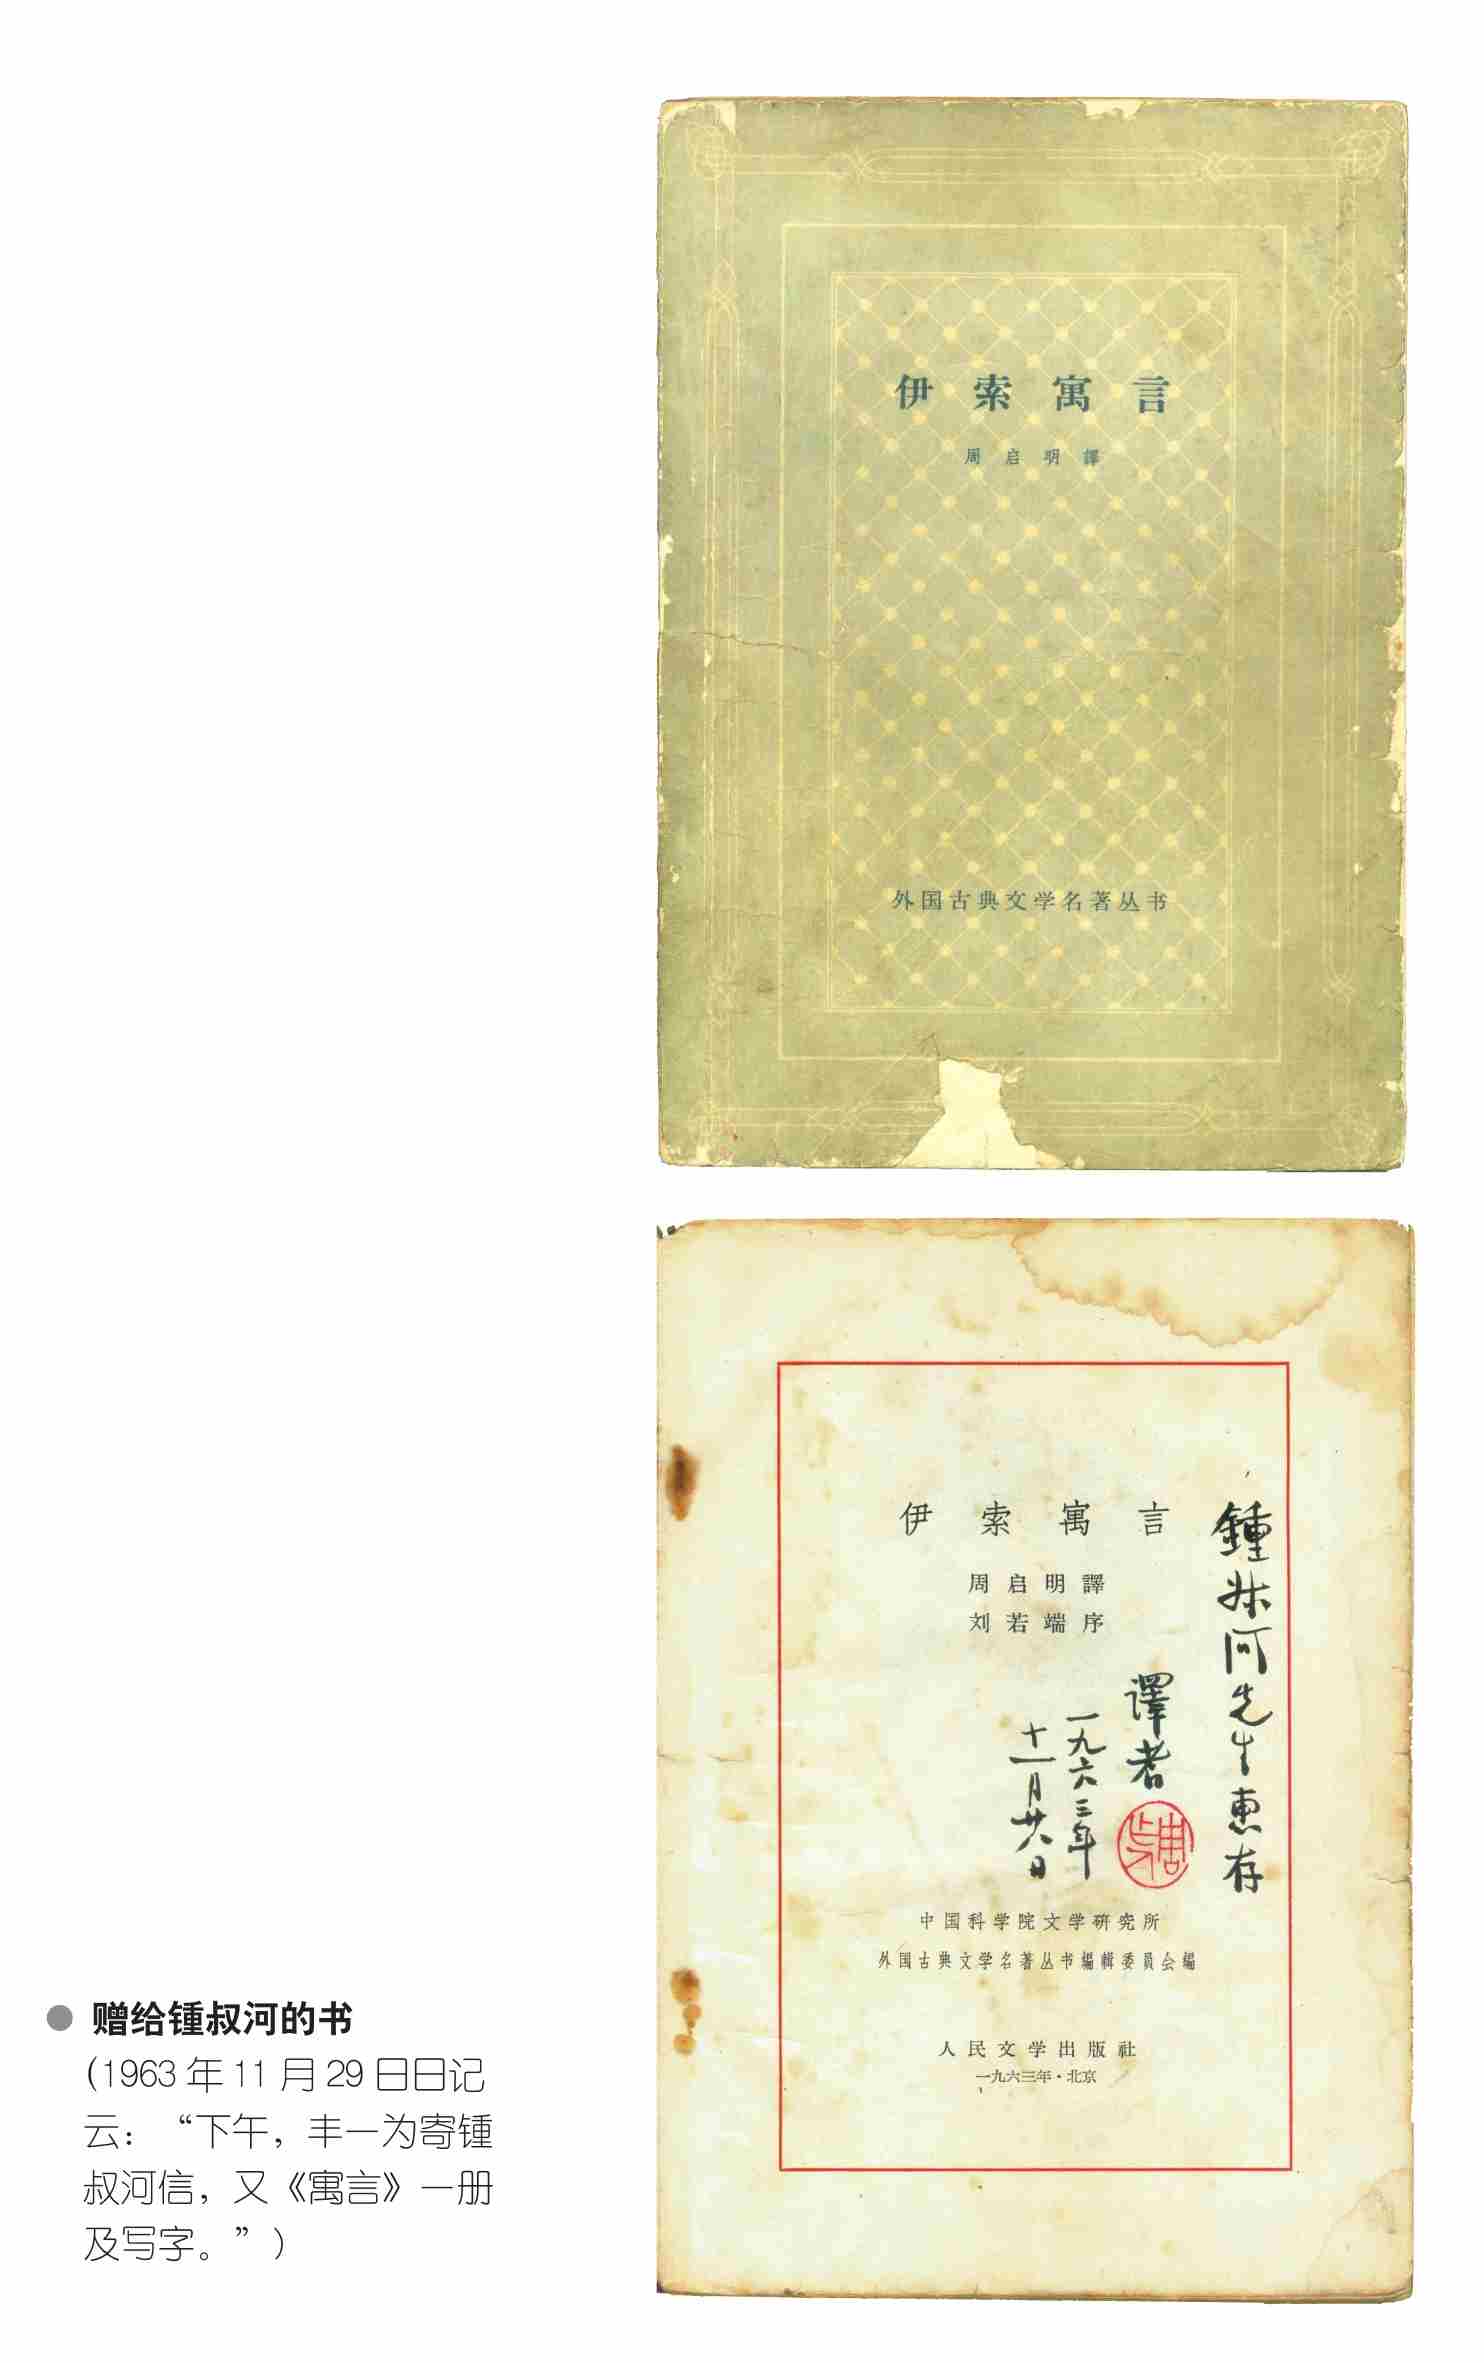 伊索寓言
周启明譯
外国古典文学名著丛书
伊索寓言
周启明譯
刘若端序
鍾叔河先生惠存
译者
一九六三年
十一月廿八日
中国科学院文学研究所
外国古典文学名著丛书編輯委員会編
人民文学出版社
一九六三年·北京
赠给锺叔河的书
(1963年11月29日日记
云：“下午，丰一为寄锺
叔河信，又《寓言》一册
及写字。”)